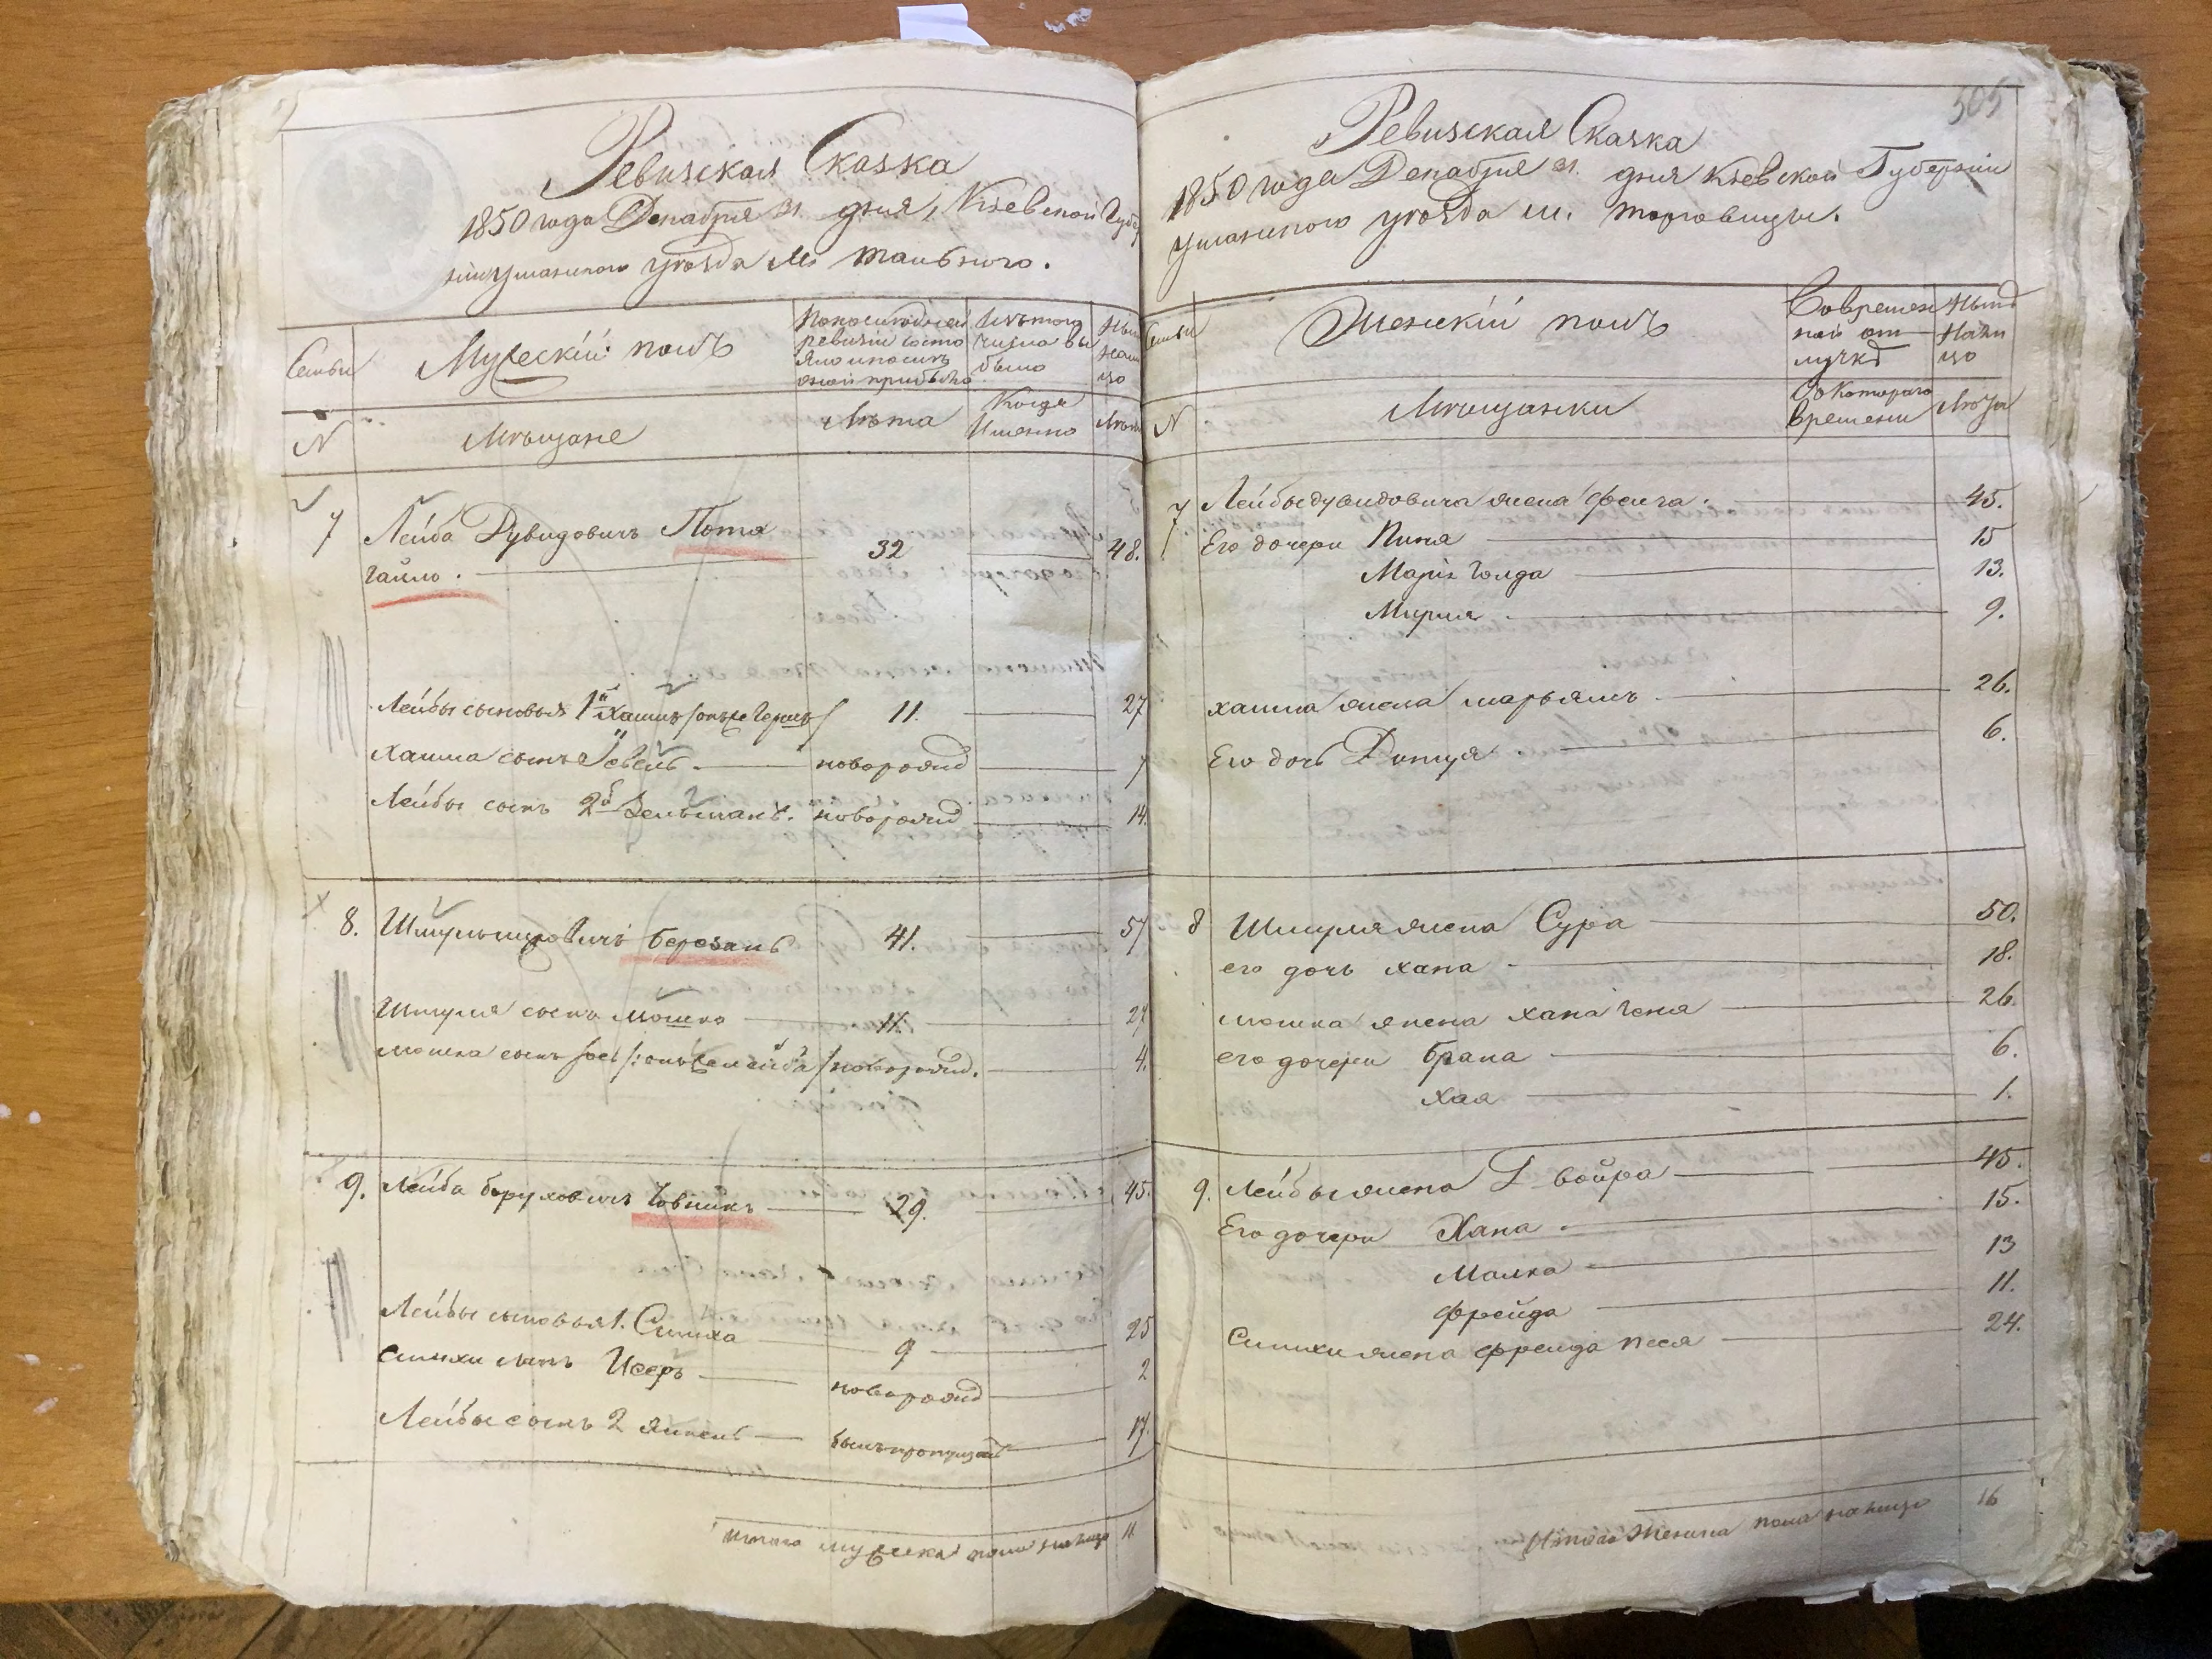 Ревизская Сказка
1850 года Декабря 31. дня, Кіевской Губер
ніи Уманского уезда М.
Семьи
Мужескій полъ
По последней
ревизіи состо
яло и после
оной прибыло
Изъ того
числа вы
было
Ныне
на ли
цо
N
Мещане
Лета
Когда
Именно
Лета
7
Лейба Дувидовичъ Пота
32
48.
гайло.
Лейбы сыновья 1й Хаимъ
11.
27
Хаима сынъ
новорожд
7
Лейбы сынъ 2й Зельманъ.
новорожд
14.
8.
Березанъ
41.
57
Шмуля сынъ Мошко
11.
27
Мошка сынъ
новорожд.
4.
9.
Лейба Боруховичъ
29.
45.
Лейбы сыновья 1. Симха
9
25
Симхи сынъ Исеръ
новорожд
2
Лейбы сынъ 2
былъ пропущенъ
17.
Итого мужеска пола на лицо 11
505
Ревизская Сказка
1850 года Декабря 31. дня Кіевской Губерніи
Уманского уезда м. Торговицы.
Семьи
Женскій полъ
Во времен
ной от
лучке
Ныне
на ли
цо
N
Мещанки
Съ котораго
времени
Лета
7
Лейбы Дувидовича жена Фейга.
45.
Его дочери
15
Марія Голда
13.
Мирия
9.
Хаима жена Марьямъ
26.
Его дочь
6.
8
Шмуля жена Сура
50.
его дочь Хана
18.
Мошка жена Хана Геня
26.
его дочери Брана
6.
Хая
1.
9.
Лейбы жена Двойра
45.
Его дочери Хана
15.
Малка
13
Фрейда
11.
Симхи жена Фрейда Песя
24.
Итого Женска пола на лицо 16